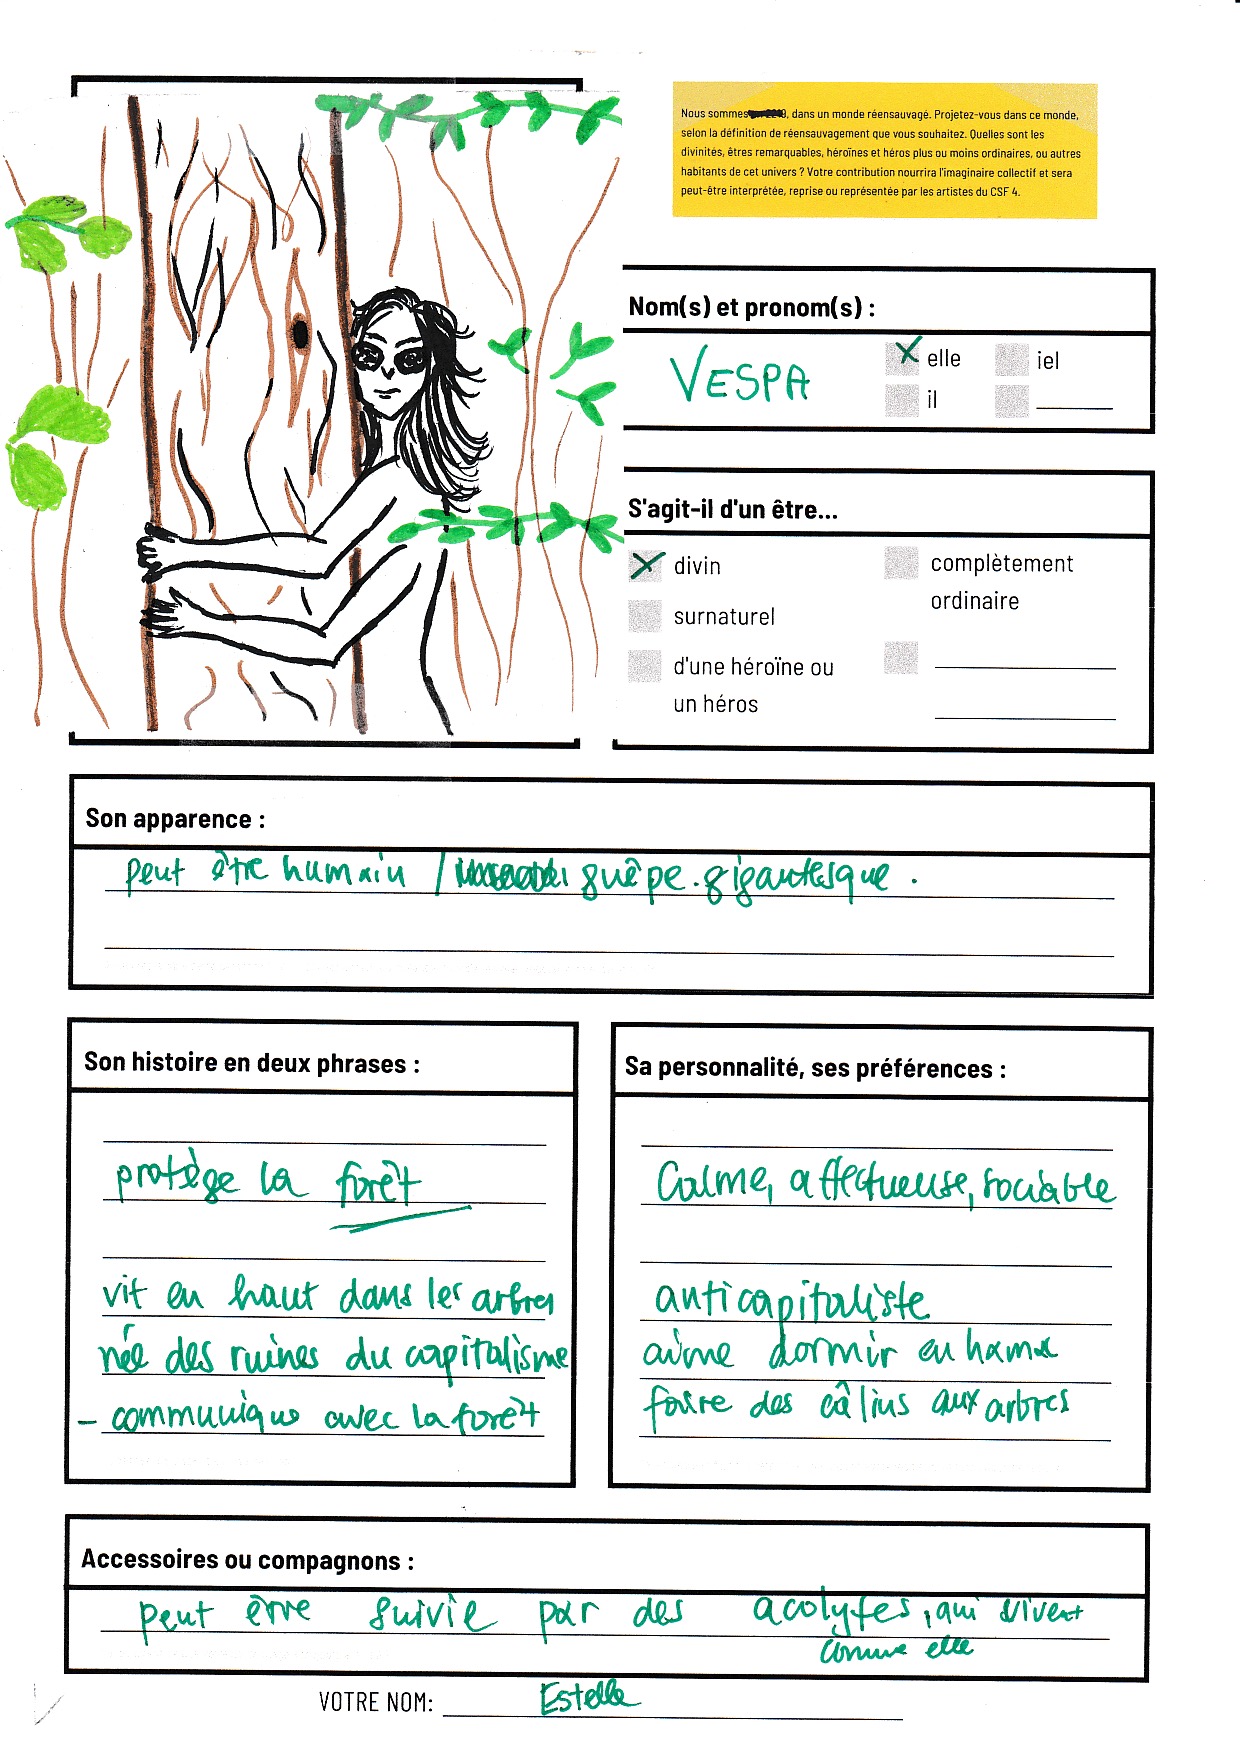 Nous sommes, dans un monde réensauvagé. Projetez-vous dans ce monde,
selon la définition de réensauvagement que vous souhaitez. Quelles sont les
divinités, êtres remarquables, héroïnes et héros plus ou moins ordinaires, ou autres
habitants de cet univers ? Votre contribution nourrira l'imaginaire collectif et sera
peut-être interprétée, reprise ou représentée par les artistes du CSF 4.
Nom(s) et pronom(s) :
VESPA
elle
iel
il
S'agit-il d'un être...
divin
complètement
ordinaire
surnaturel
d'une héroïne ou
un héros
Son apparence :
peut être humain / guêpe gigantesque.
Son histoire en deux phrases :
protège la forêt
vit en haut dans les arbres
née des ruines du capitalisme
- communique avec la forêt
Sa personnalité, ses préférences :
Calme, affectueuse, sociable
anticapitaliste
aime dormir en hamac
faire des câlins aux arbres
Accessoires ou compagnons :
peut être suivie par des acolytes, qui vivent
comme elle
VOTRE NOM: Estelle